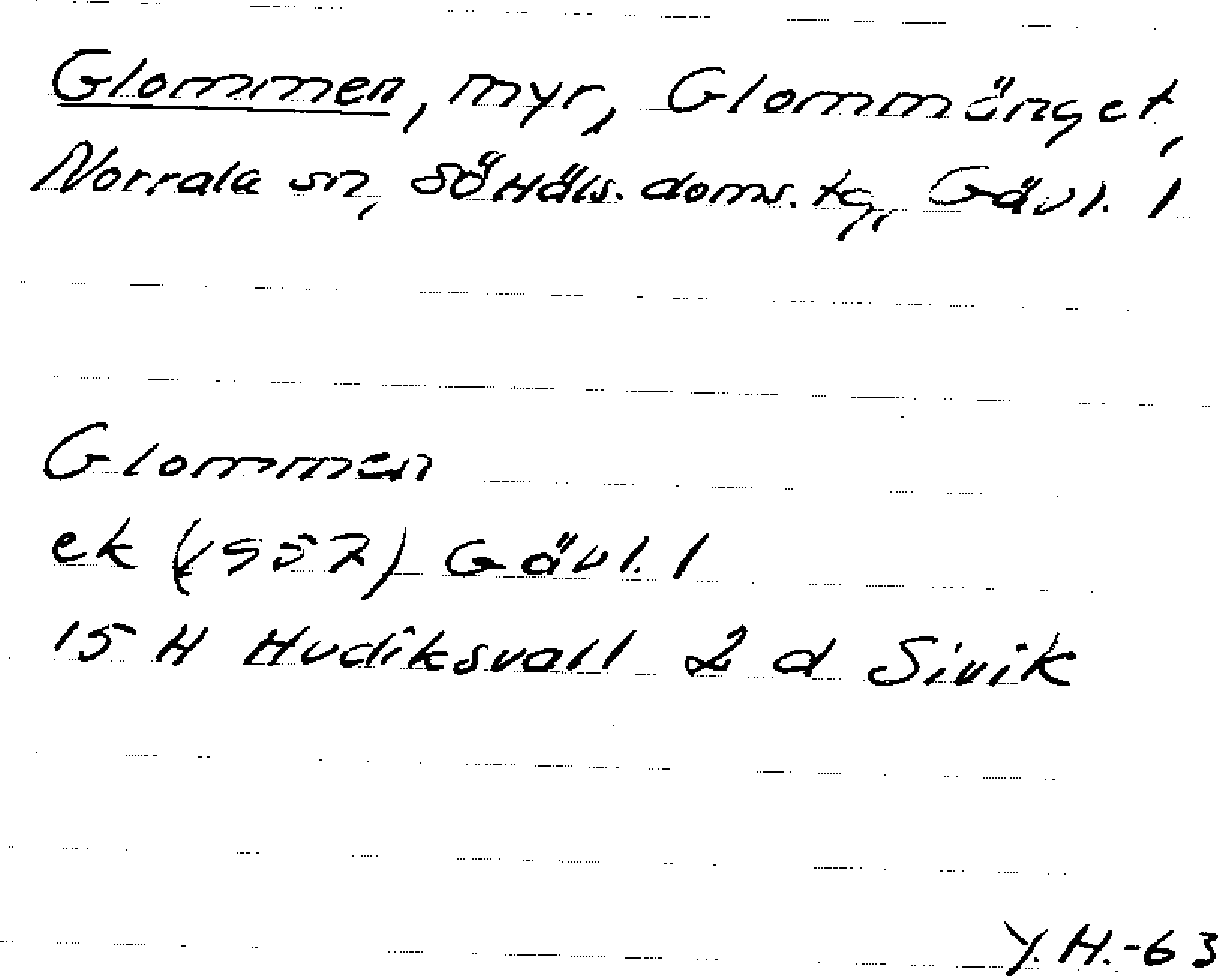 Glommen, myr, Glommänget,
Norrala sn, Sö Häls. doms. tg, Gävl. l
Glommen
ek (1957) Gävl. l
15 H Hudiksvall 2 d Sivik
Y.H.-63